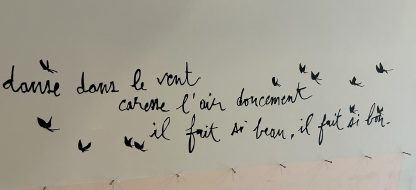 danse dans le vent
caresse l'air doucement
il fait si beau, il fait si bon.